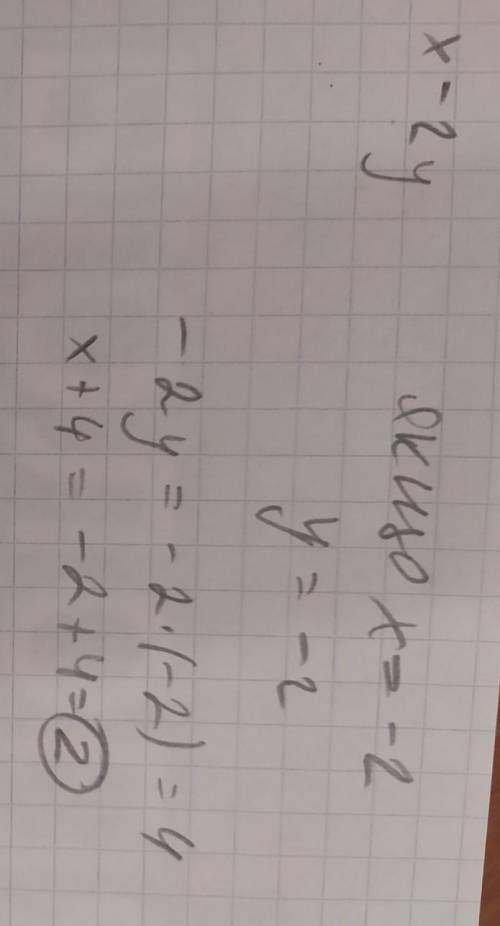 x - 2y
якщо x = -2
y = -2
-2y = -2·(-2) = 4
x + 4 = -2 + 4 = 2